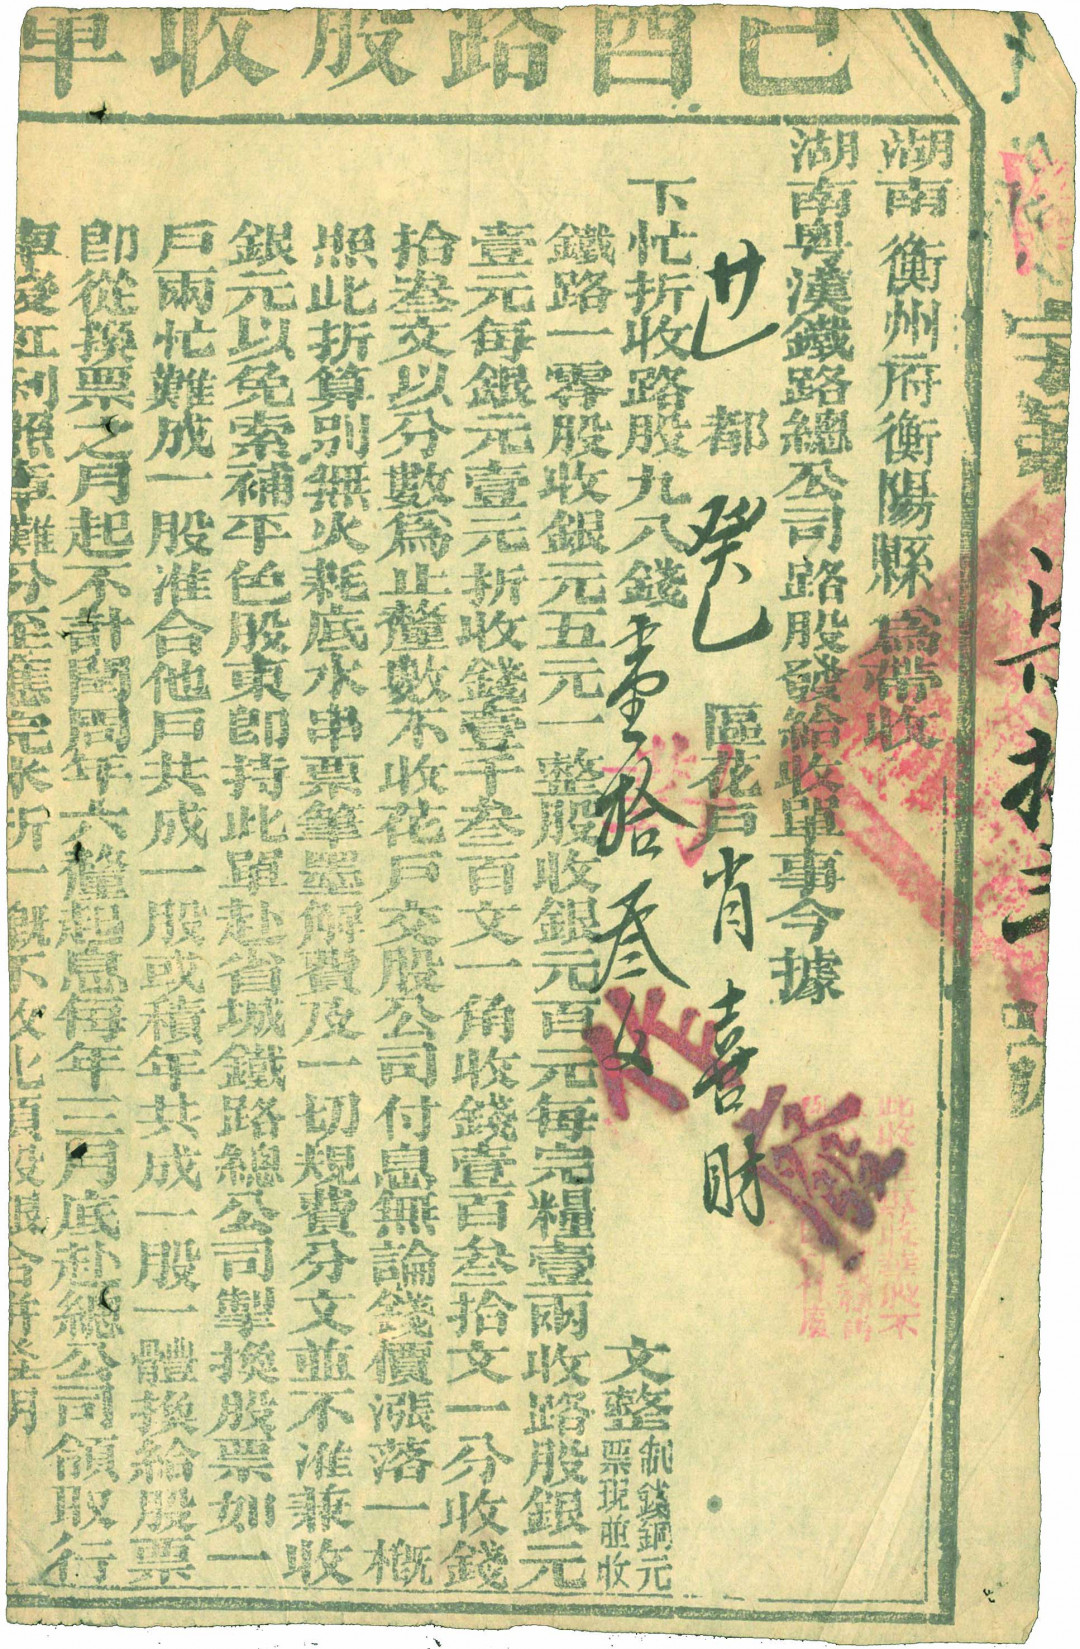 己酉路股收單
湖南衡州府衡陽縣爲帶收
湖南粵漢鐵路總公司路股發給收單事今據
廿七都癸七區花戶肖喜財
下忙折收路股九八錢壹拾叁文文整制錢銅元票現並收
鐵路一零股收銀元五元一整股收銀元百元每完糧壹兩收路股銀元
壹元每銀元壹元折收錢壹千叁百文一角收錢壹百叁拾文一分收錢
拾叁文以分數爲止釐數不收花戶交股公司付息無論錢價漲落一概
照此折算別無火耗底水串票筆墨解費及一切規費分文並不准兼收
銀元以免索補平色股東卽持此單赴省城鐵路總公司掣換股票如一
戶兩忙難成一股准合他戶共成一股或積年共成一股一體換給股票
卽從換票之月起不計閏周年六釐起息每年三月底赴總公司領取行
車後紅利照章攤分至應完米折一概不收此項股銀合併登明